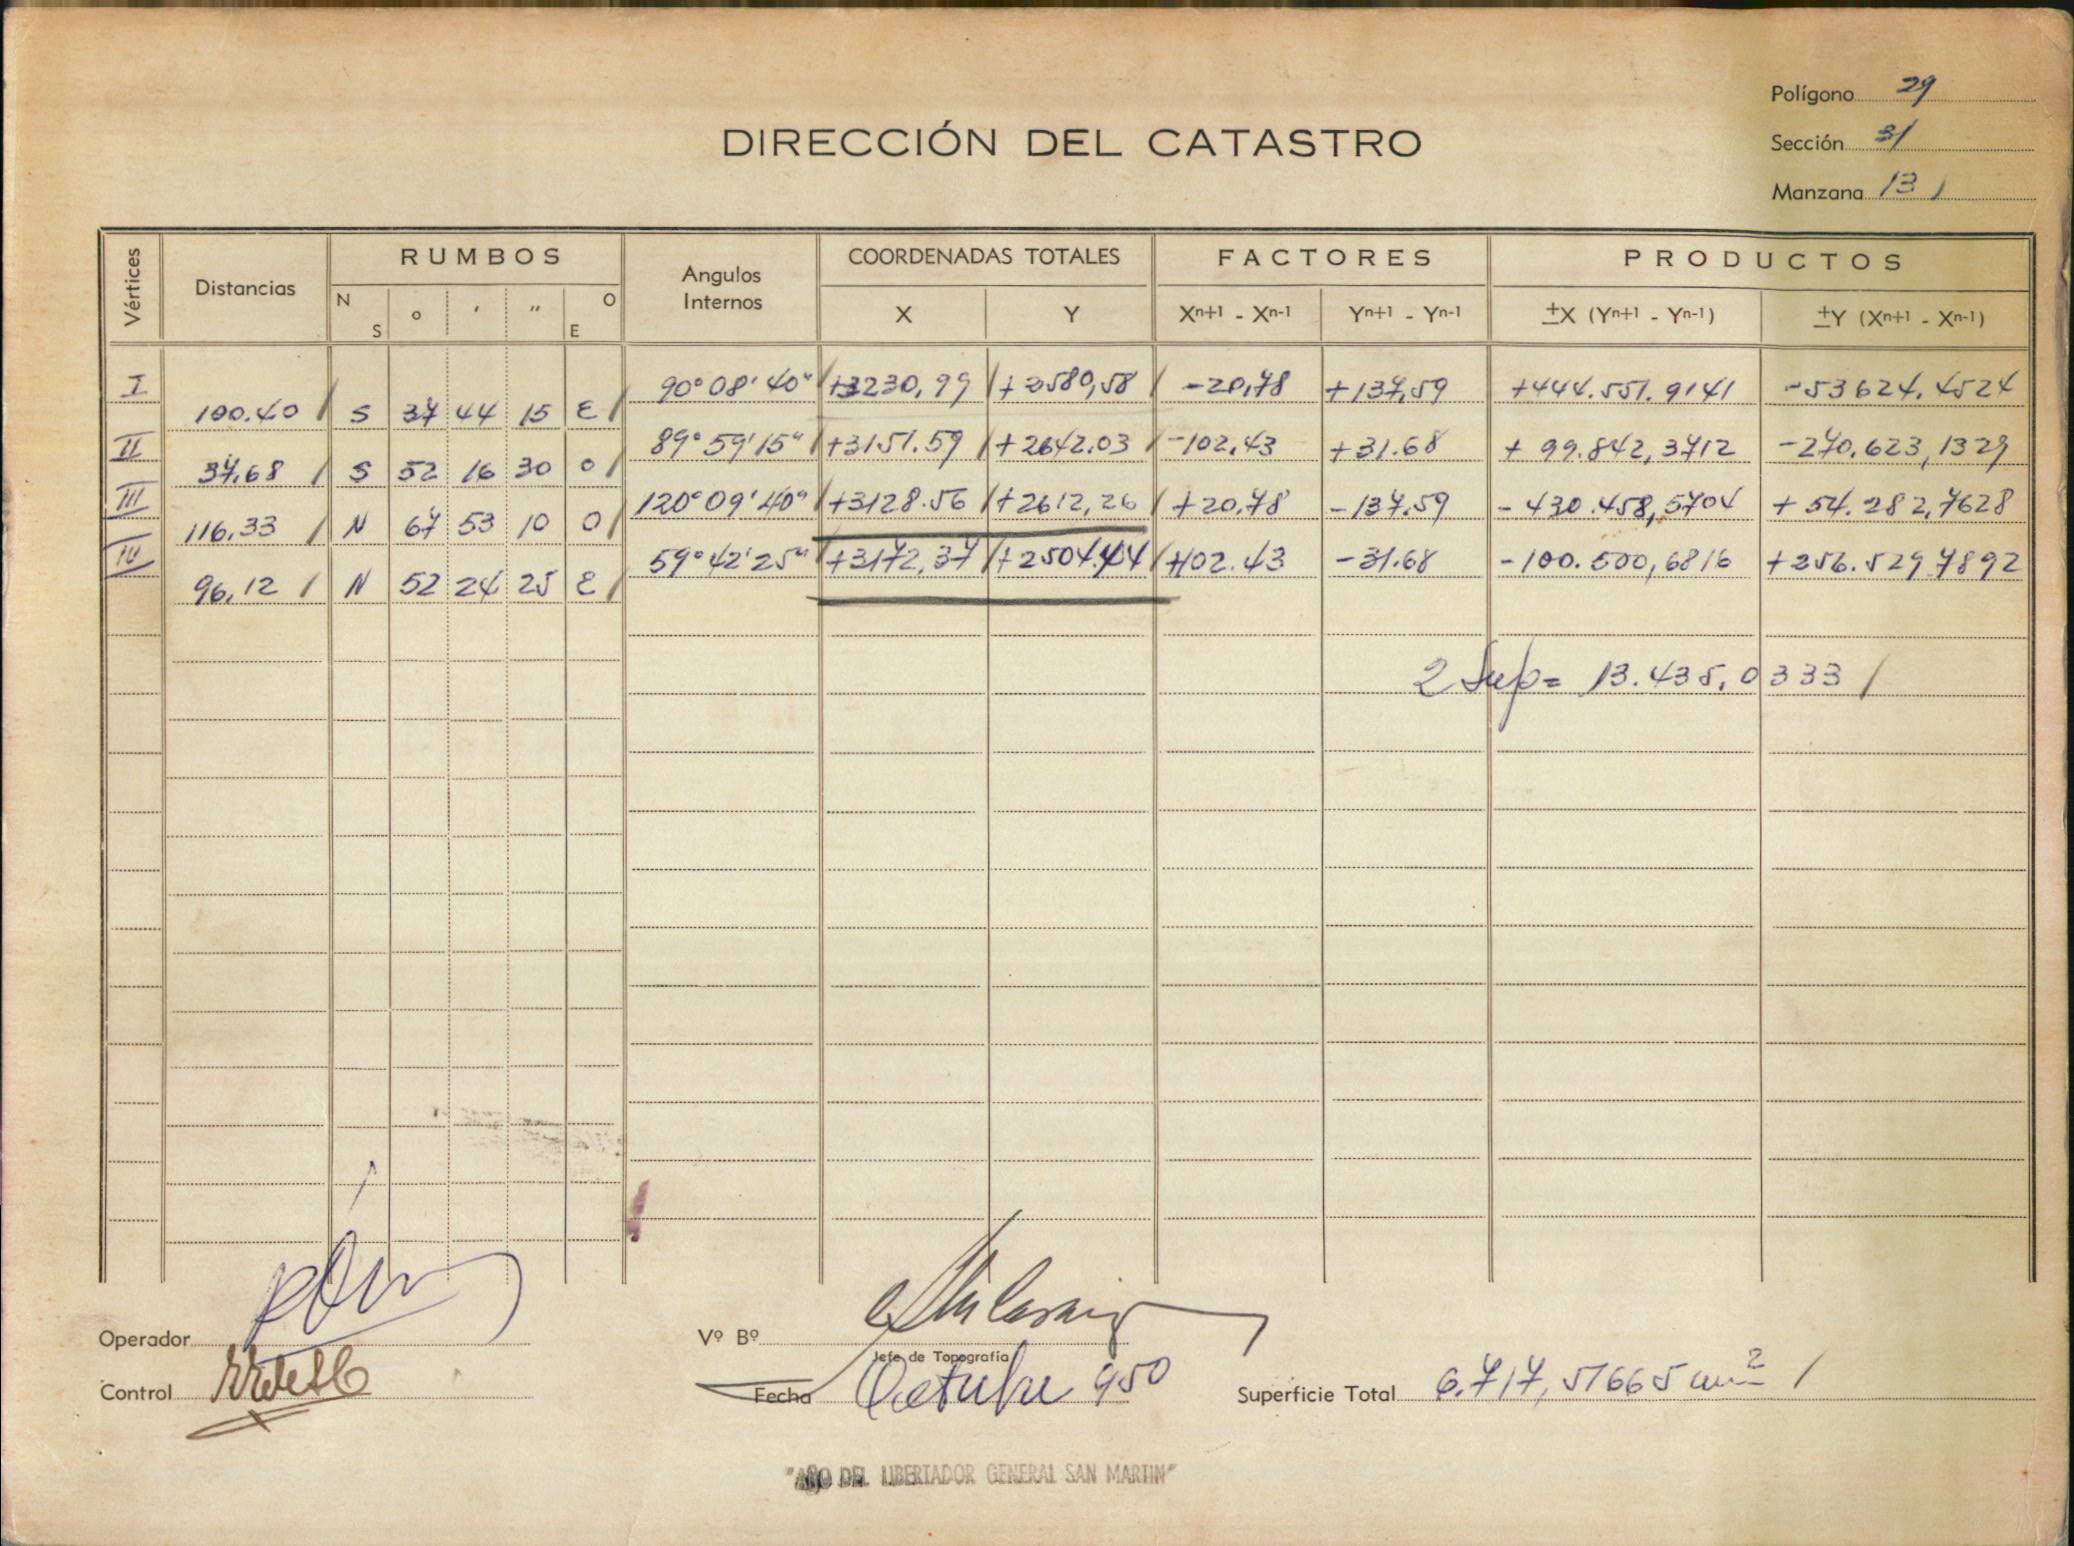 Polígono 29
DIRECCIÓN DEL CATASTRO
Sección 31
Manzana 13 /
Vértices Distancias RUMBOS Angulos Internos COORDENADAS TOTALES FACTORES PRODUCTOS
N S o ' " O E X Y Xn+1 - Xn-1 Yn+1 - Yn-1 ±X (Yn+1 - Yn-1) ±Y (Xn+1 - Xn-1)
I 90° 08' 40" / +3230,99 / +2580,58 / -20,78 +137,59 +444.551.9141 -53624.4524
100.40 / S 37 44 15 E /
II 89° 59' 15" / +3151.59 / +2642.03 / -102.43 +31.68 + 99.842,3712 -270.623,1329
37,68 / S 52 16 30 O /
III 120° 09' 40" / +3128.56 / +2612,26 / +20.78 -137.59 - 430.458,5704 + 54.282,7628
116,33 / N 67 53 10 O /
IV 59° 42' 25" / +3172,37 / +2504.44 / +102.43 -31.68 -100.500,6816 +256.529.7892
96,12 / N 52 24 25 E /
2 Sup= 13.435,0333 /
Operador
Vº Bº
Jefe de Topografía
Control
Fecha Octubre 950
Superficie Total 6.717,51665 m² /
"AÑO DEL LIBERTADOR GENERAL SAN MARTIN"